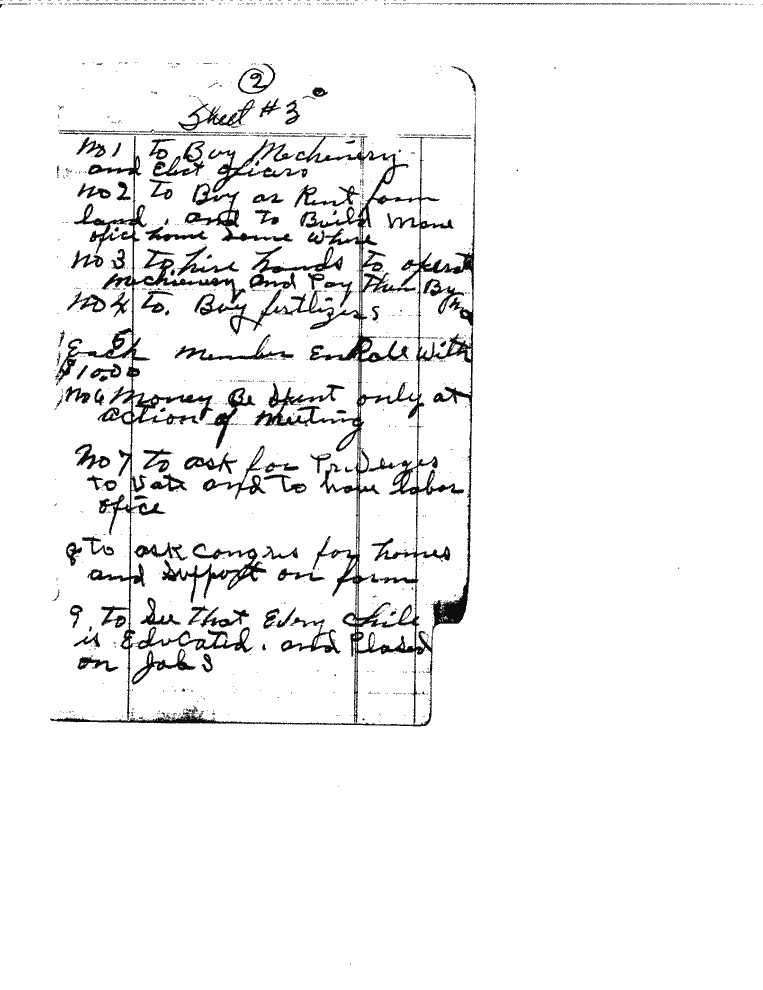 2
Sheet # 3
No 1 To Buy Mechinery
and Elect oficers
No 2 To Buy or Rent farm
land, and To Build More
ofice home some where
No 3 To hire hands to operate
Mechienery and Pay Them By
No 4 To. Buy fertlizers
5
Each member EnRole with
$10.00
No 6 Money Be Spent only at
action of meeting
No 7 To ask for Privleges
to Vate and To have labor
ofice
8 To ask Congris for homes
and Support on farm
9. To See That Every Chile
is Educated. and Plased
on Jobs